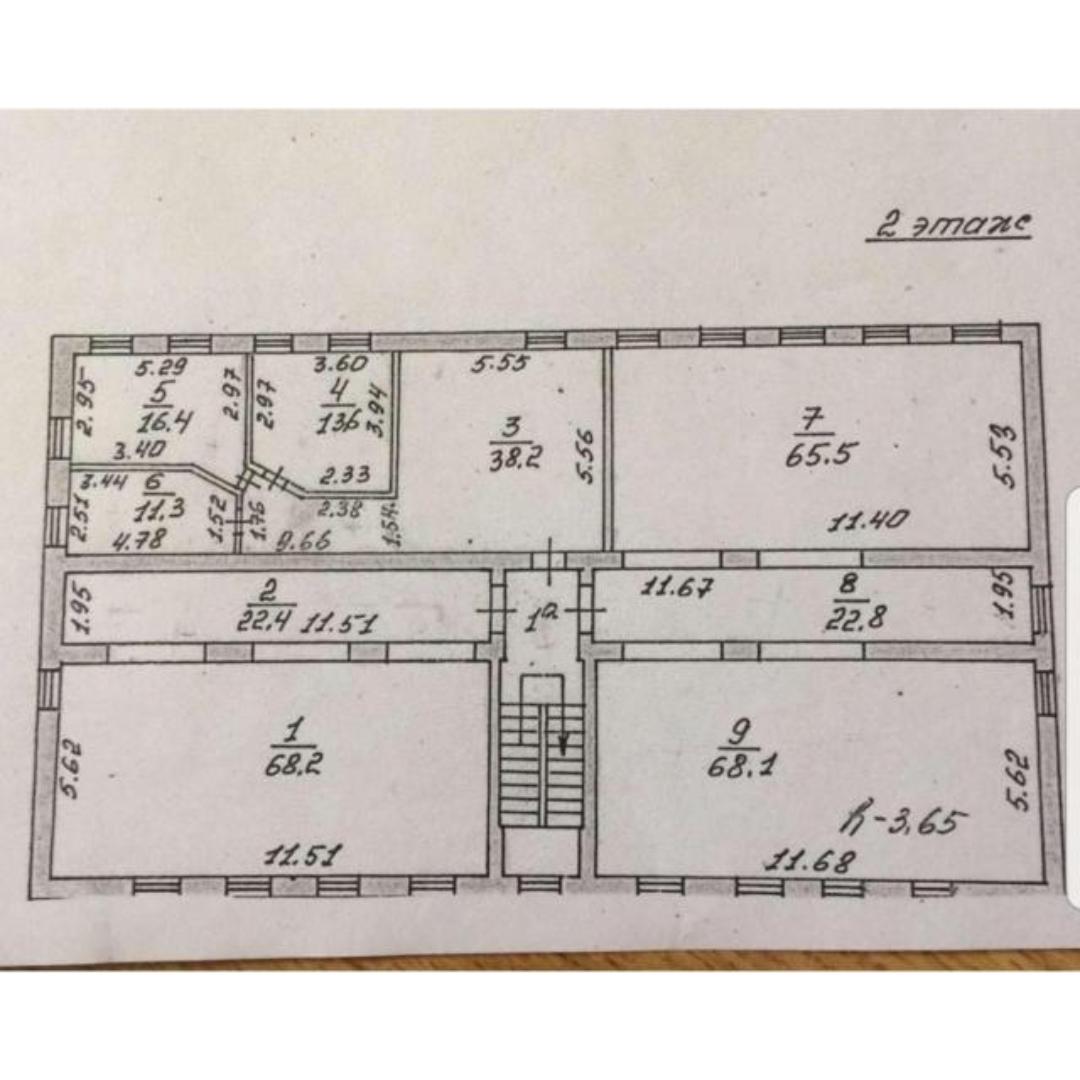 2 этаж
5.29
2.95
5
16.4
2.97
3.40
3.60
2.97
4
13.6
3.94
2.33
5.55
3
38.2
5.56
7
65.5
5.53
11.40
3.44
6
11.3
2.51
1.52
4.78
1.76
2.38
1.54
9.66
1.95
2
22.4
11.51
1а
11.67
8
22.8
1.95
5.62
1
68.2
11.51
9
68.1
5.62
h-3.65
11.68